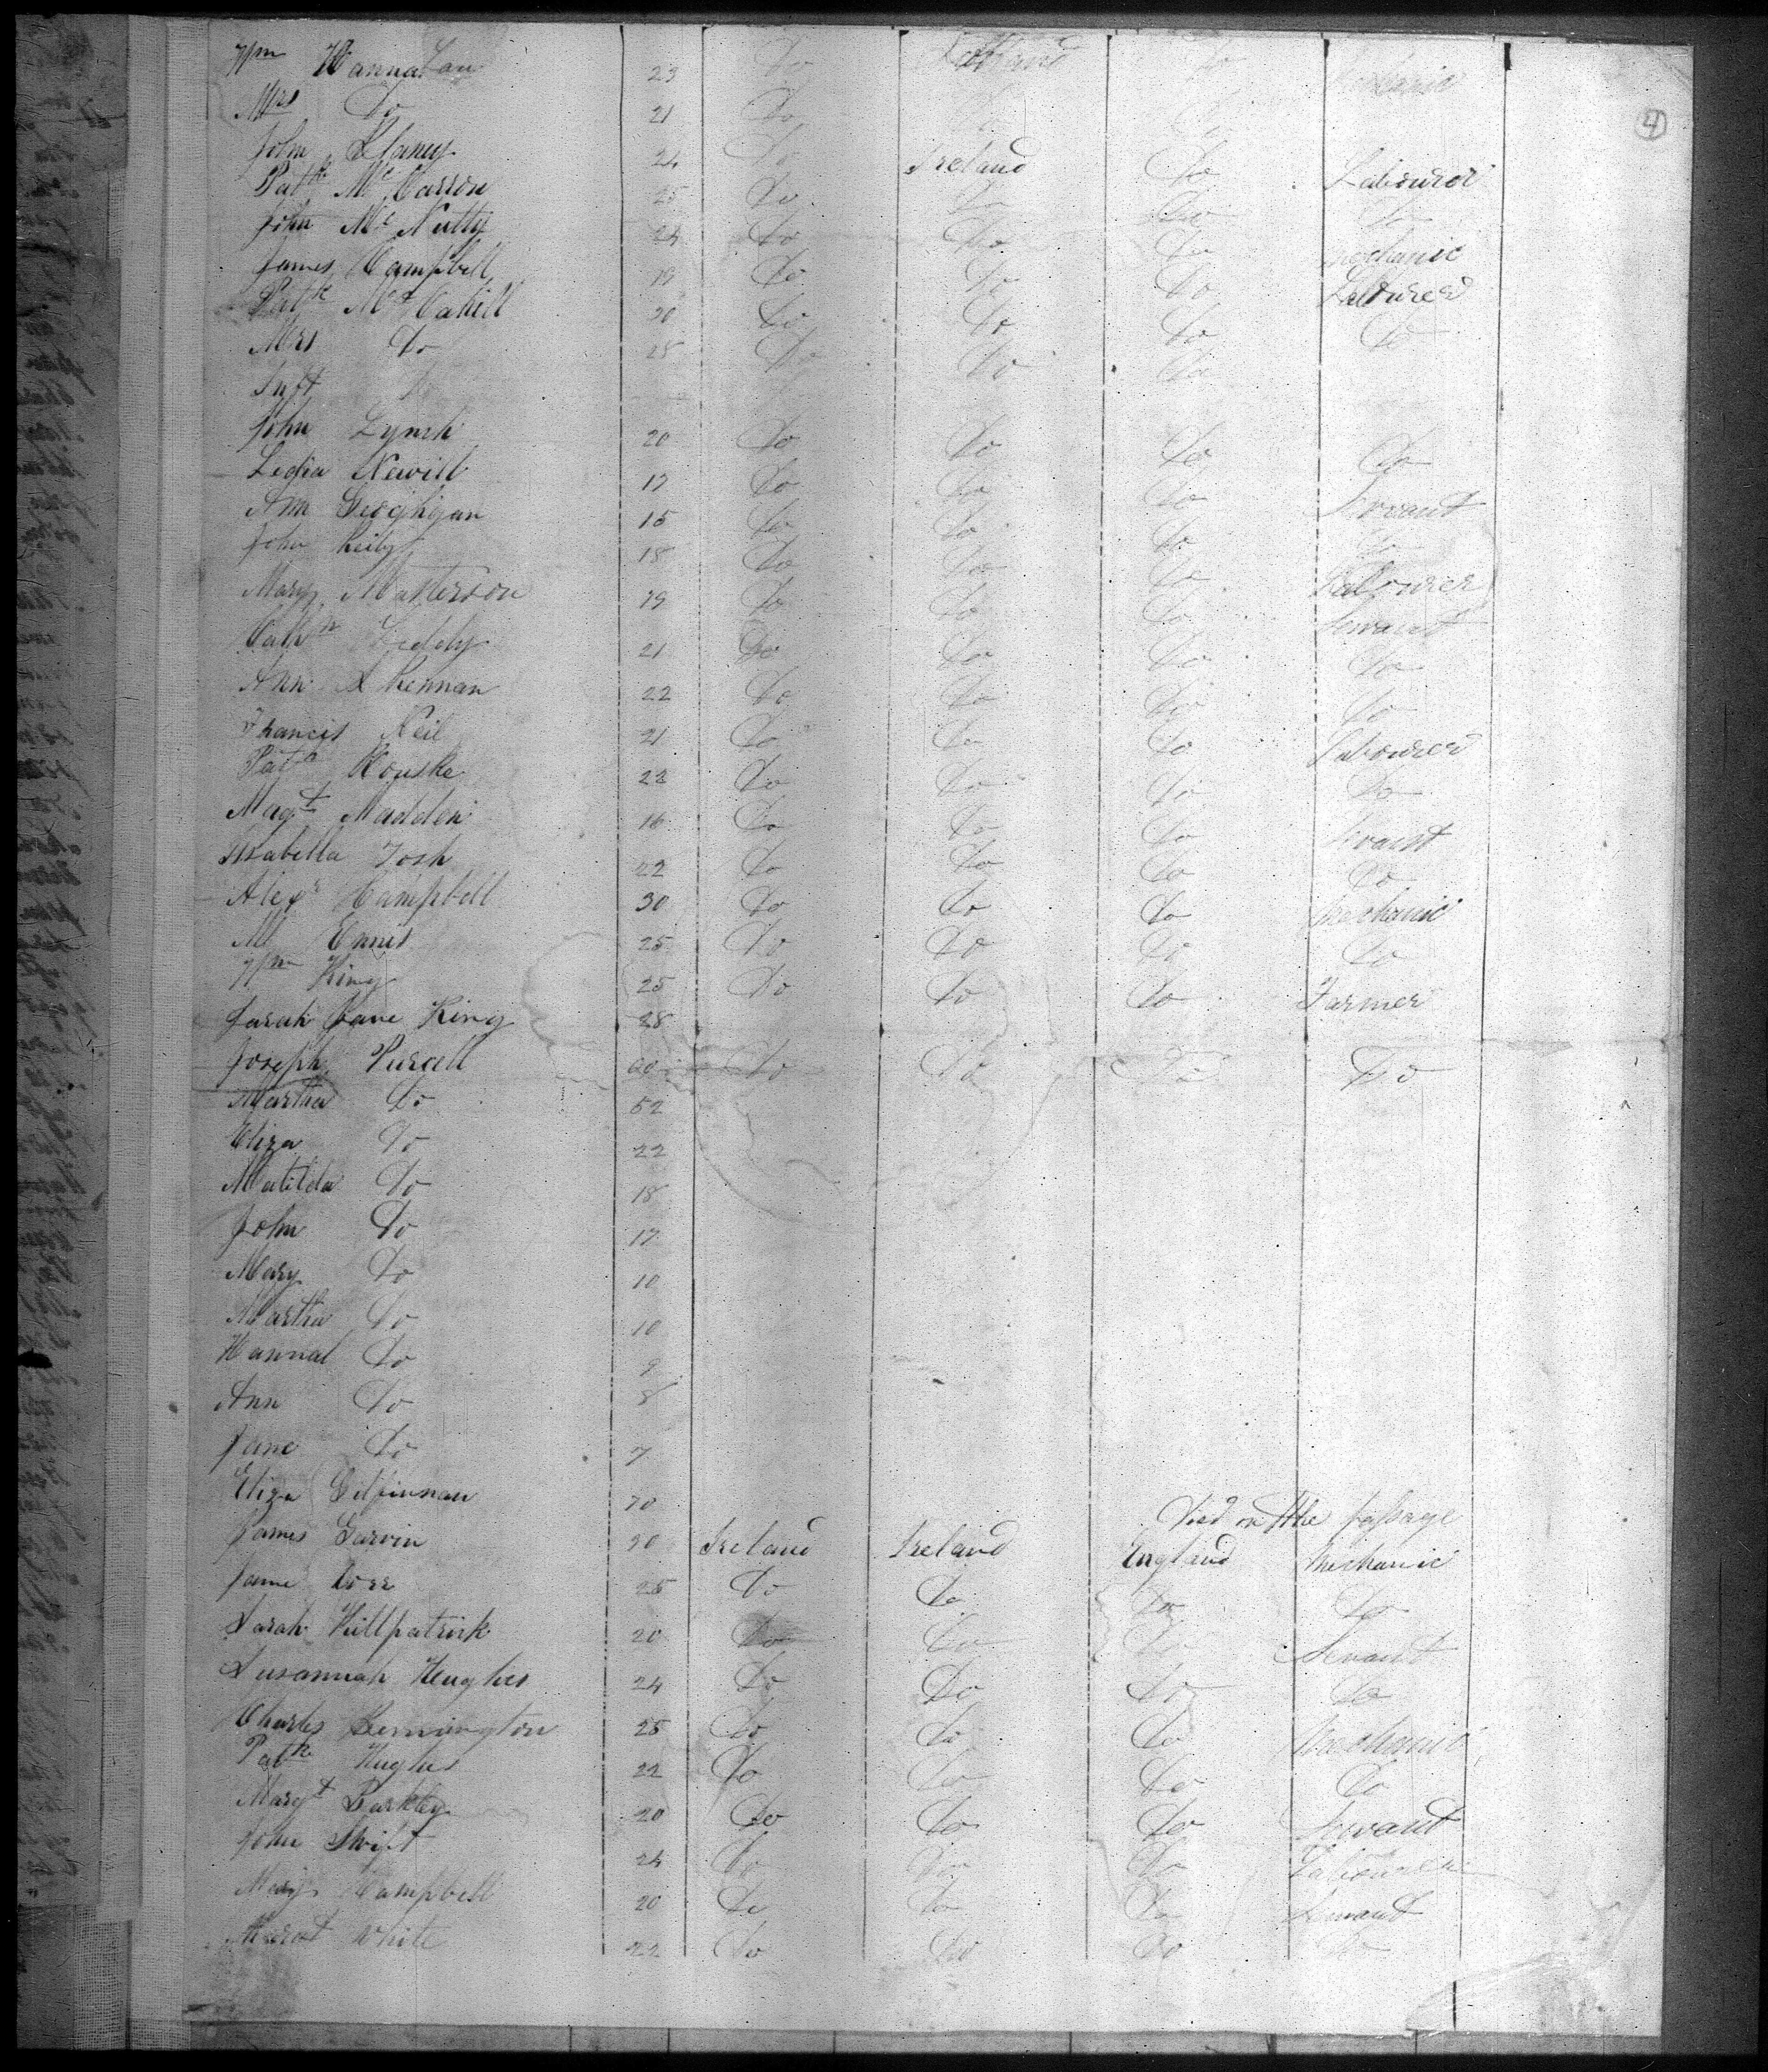 4
Wm Hanna 23 Do Do
Mrs Do 21 Do Do Do
John Clancy 24 Do Ireland Do Labourer
Patk McCarron 25 Do Do Do Do
John Mc Nutty 24 Do Do Do Mechanic
James Campbell 19 Do Do Do Labourer
Patk McCahill 30 Do Do Do Do
Mrs Do 25 Do Do Do
Inft
John Lynch 20 Do Do Do Do
Ledia Newill 17 Do Do Do Servant
Ann Geoghgan 15 Do Do Do Do
John Reily 18 Do Do Do Labourer
Mary Masterson 19 Do Do Do Servant
Cathn Leddy 21 Do Do Do Do
Ann 22 Do Do Do Do
Francis Neil 21 Do Do Do Labourer
Patk Rouske 23 Do Do Do Do
Magt Madden 16 Do Do Do Servant
Isabella Tosh 22 Do Do Do Do
Alexr Campbell 30 Do Do Do Mechanic
Ennis 25 Do Do Do Do
Wm King 25 Do Do Do Farmer
Sarah Jane King 28
Joseph Purcell 60 Do Do Do Do
Martha Do 52
Eliza Do 22
Matilda Do 18
John Do 17
Mary Do 10
Martha Do 10
Hannah Do 9
Ann Do 8
Jane Do 7
Eliza Gilfinnan 70 Died on the passage
James Garvin 30 Ireland Ireland England Mechanic
Jame 25 Do Do Do Do
Sarah Killpatrick 20 Do Do Do Servant
Susannah Heughes 24 Do Do Do Do
Charles 25 Do Do Do Mechanic
Patk Hughes 22 Do Do Do Do
Margt Barkley 20 Do Do Do Servant
John Swift 24 Do Do Do Labourer
Mary Campbell 20 Do Do Do Servant
White 22 Do Do Do Do